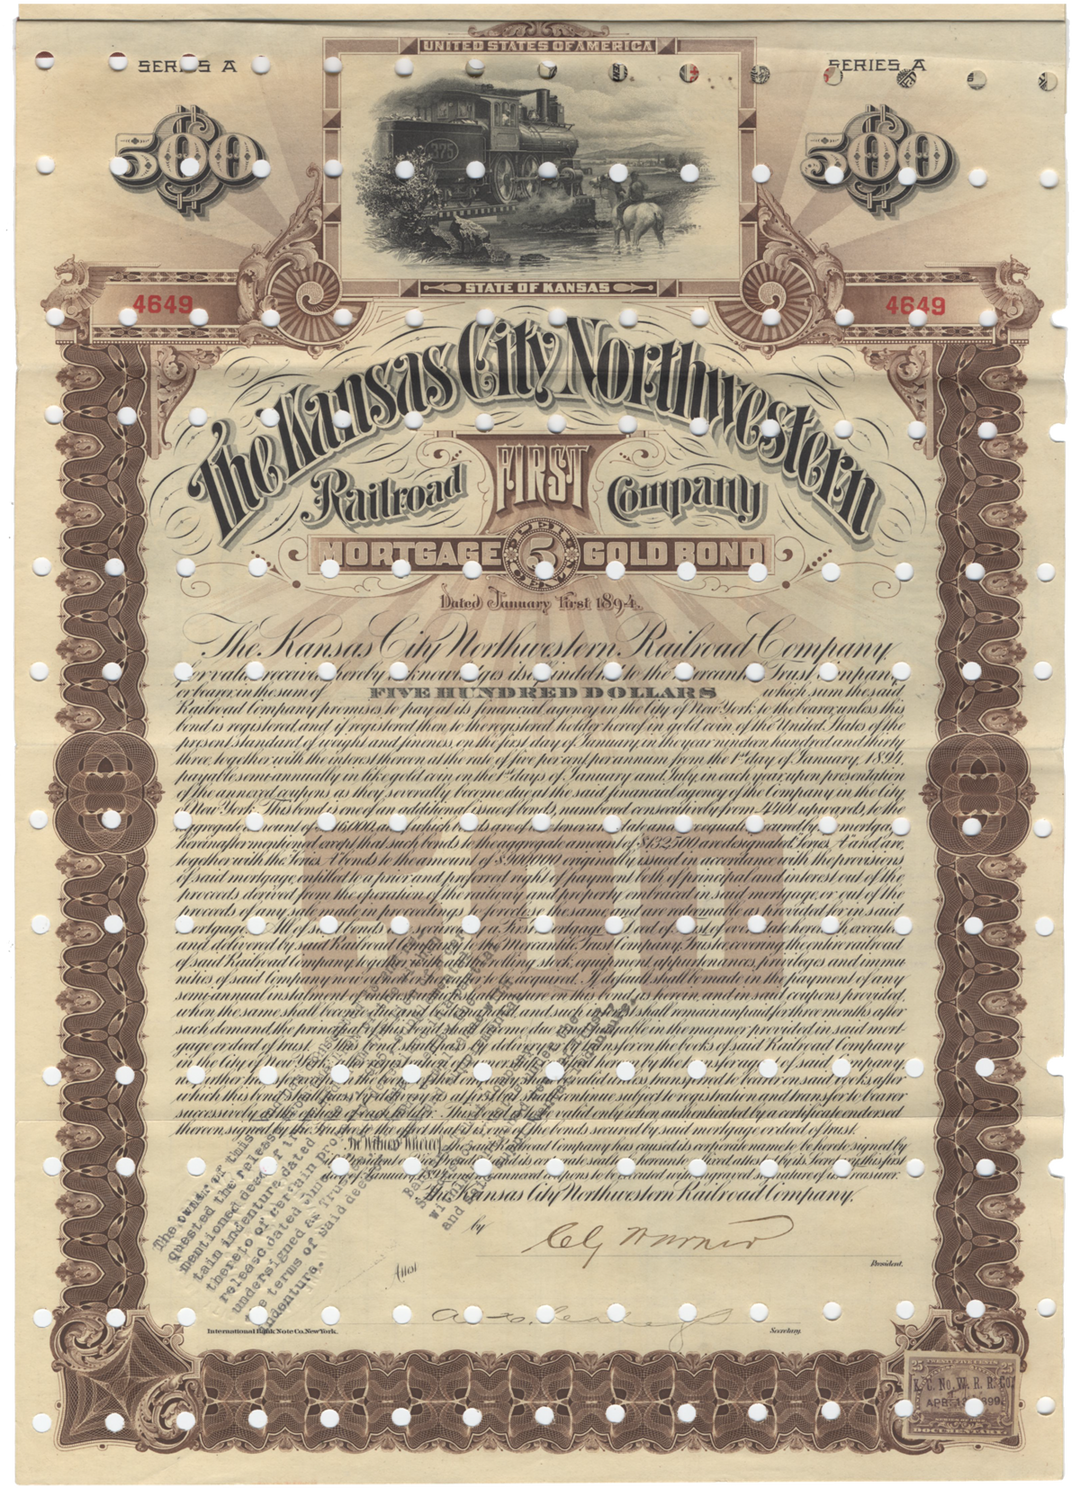 UNITED STATES OF AMERICA
SERIES A
SERIES A
500
375
500
STATE OF KANSAS
4649
4649
The Kansas City Northwestern
Railroad FIRST Company
MORTGAGE 5 GOLD BOND
PER CENT
Dated January First 1894.
The Kansas City Northwestern Railroad Company
for value received hereby acknowledges itself indebted to the Mercantile Trust Company
or bearer, in the sum of FIVE HUNDRED DOLLARS which sum the said
Railroad Company promises to pay at its financial agency in the City of New York to the bearer unless this
bond is registered, and if registered then to the registered holder hereof in gold coin of the United States of the
present standard of weight and fineness, on the first day of January, in the year nineteen hundred and thirty
three, together with the interest thereon at the rate of five per cent per annum from the 1st day of January, 1894,
payable semi-annually in like gold coin on the 1st days of January and July, in each year, upon presentation
of the annexed coupons as they severally become due at the said financial agency of the Company in the City
of New York. This bond is one of an additional issue of bonds, numbered consecutively from 4401 upwards, to the
aggregate amount of all of which bonds are of and are equally secured by a mortgage
hereinafter mentioned except that such bonds to the aggregate amount of $132500 are designated Series A and are,
together with the Series A bonds to the amount of $900,000 originally issued in accordance with the provisions
of said mortgage, entitled to a prior and preferred right of payment both of principal and interest out of the
proceeds derived from the operation of the railway and property embraced in said mortgage, or out of the
proceeds of any sale made in proceedings to foreclose the same and are redeemable as provided for in said
mortgage. All of said bonds are secured by a First Mortgage or Deed of Trust of even date herewith executed
and delivered by said Railroad Company to the Mercantile Trust Company, Trustee covering the entire railroad
of said Railroad Company, together with all rolling stock, equipment, appurtenances, privileges and immu-
nities of said Company now owned or hereafter to be acquired. If default shall be made in the payment of any
semi-annual instalment of interest which shall mature on this bond, as herein, and in said coupons provided,
when the same shall become due and be demanded, and such interest shall remain unpaid for three months after
such demand, the principal of this bond shall become due and payable in the manner provided in said mort-
gage or deed of trust. This bond shall pass by delivery or by transfer on the books of said Railroad Company
in the City of New York. After registration of ownership certified hereon by the transfer agent of said Company
no further transfer except on the books of the Company shall be valid unless transferred to bearer on said books, after
which this bond shall pass by delivery as at first but shall continue subject to registration and transfer to bearer
successively at the option of each holder. This bond shall be valid only when authenticated by a certificate endorsed
thereon, signed by the Trustee to the effect that it is one of the bonds secured by said mortgage or deed of trust.
In Witness Whereof the said Railroad Company has caused its corporate name to be hereto signed by
its President or Vice President and its corporate seal to be hereunto affixed, attested by its Secretary, this first
day of January, 1894, and coupons to be executed with engraved signature of its Treasurer.
The Kansas City Northwestern Railroad Company.
by
President.
Attest
Secretary.
The owner of this
quested the release
mentioned deed of
tain indenture
thereto of certain pro
released dated
undersigned as Trustee
the terms of said deed
indenture.
International Bank Note Co. New York.
25 25
K. C. No. W. R. R. Co.
APR 1899
DOCUMENTARY.